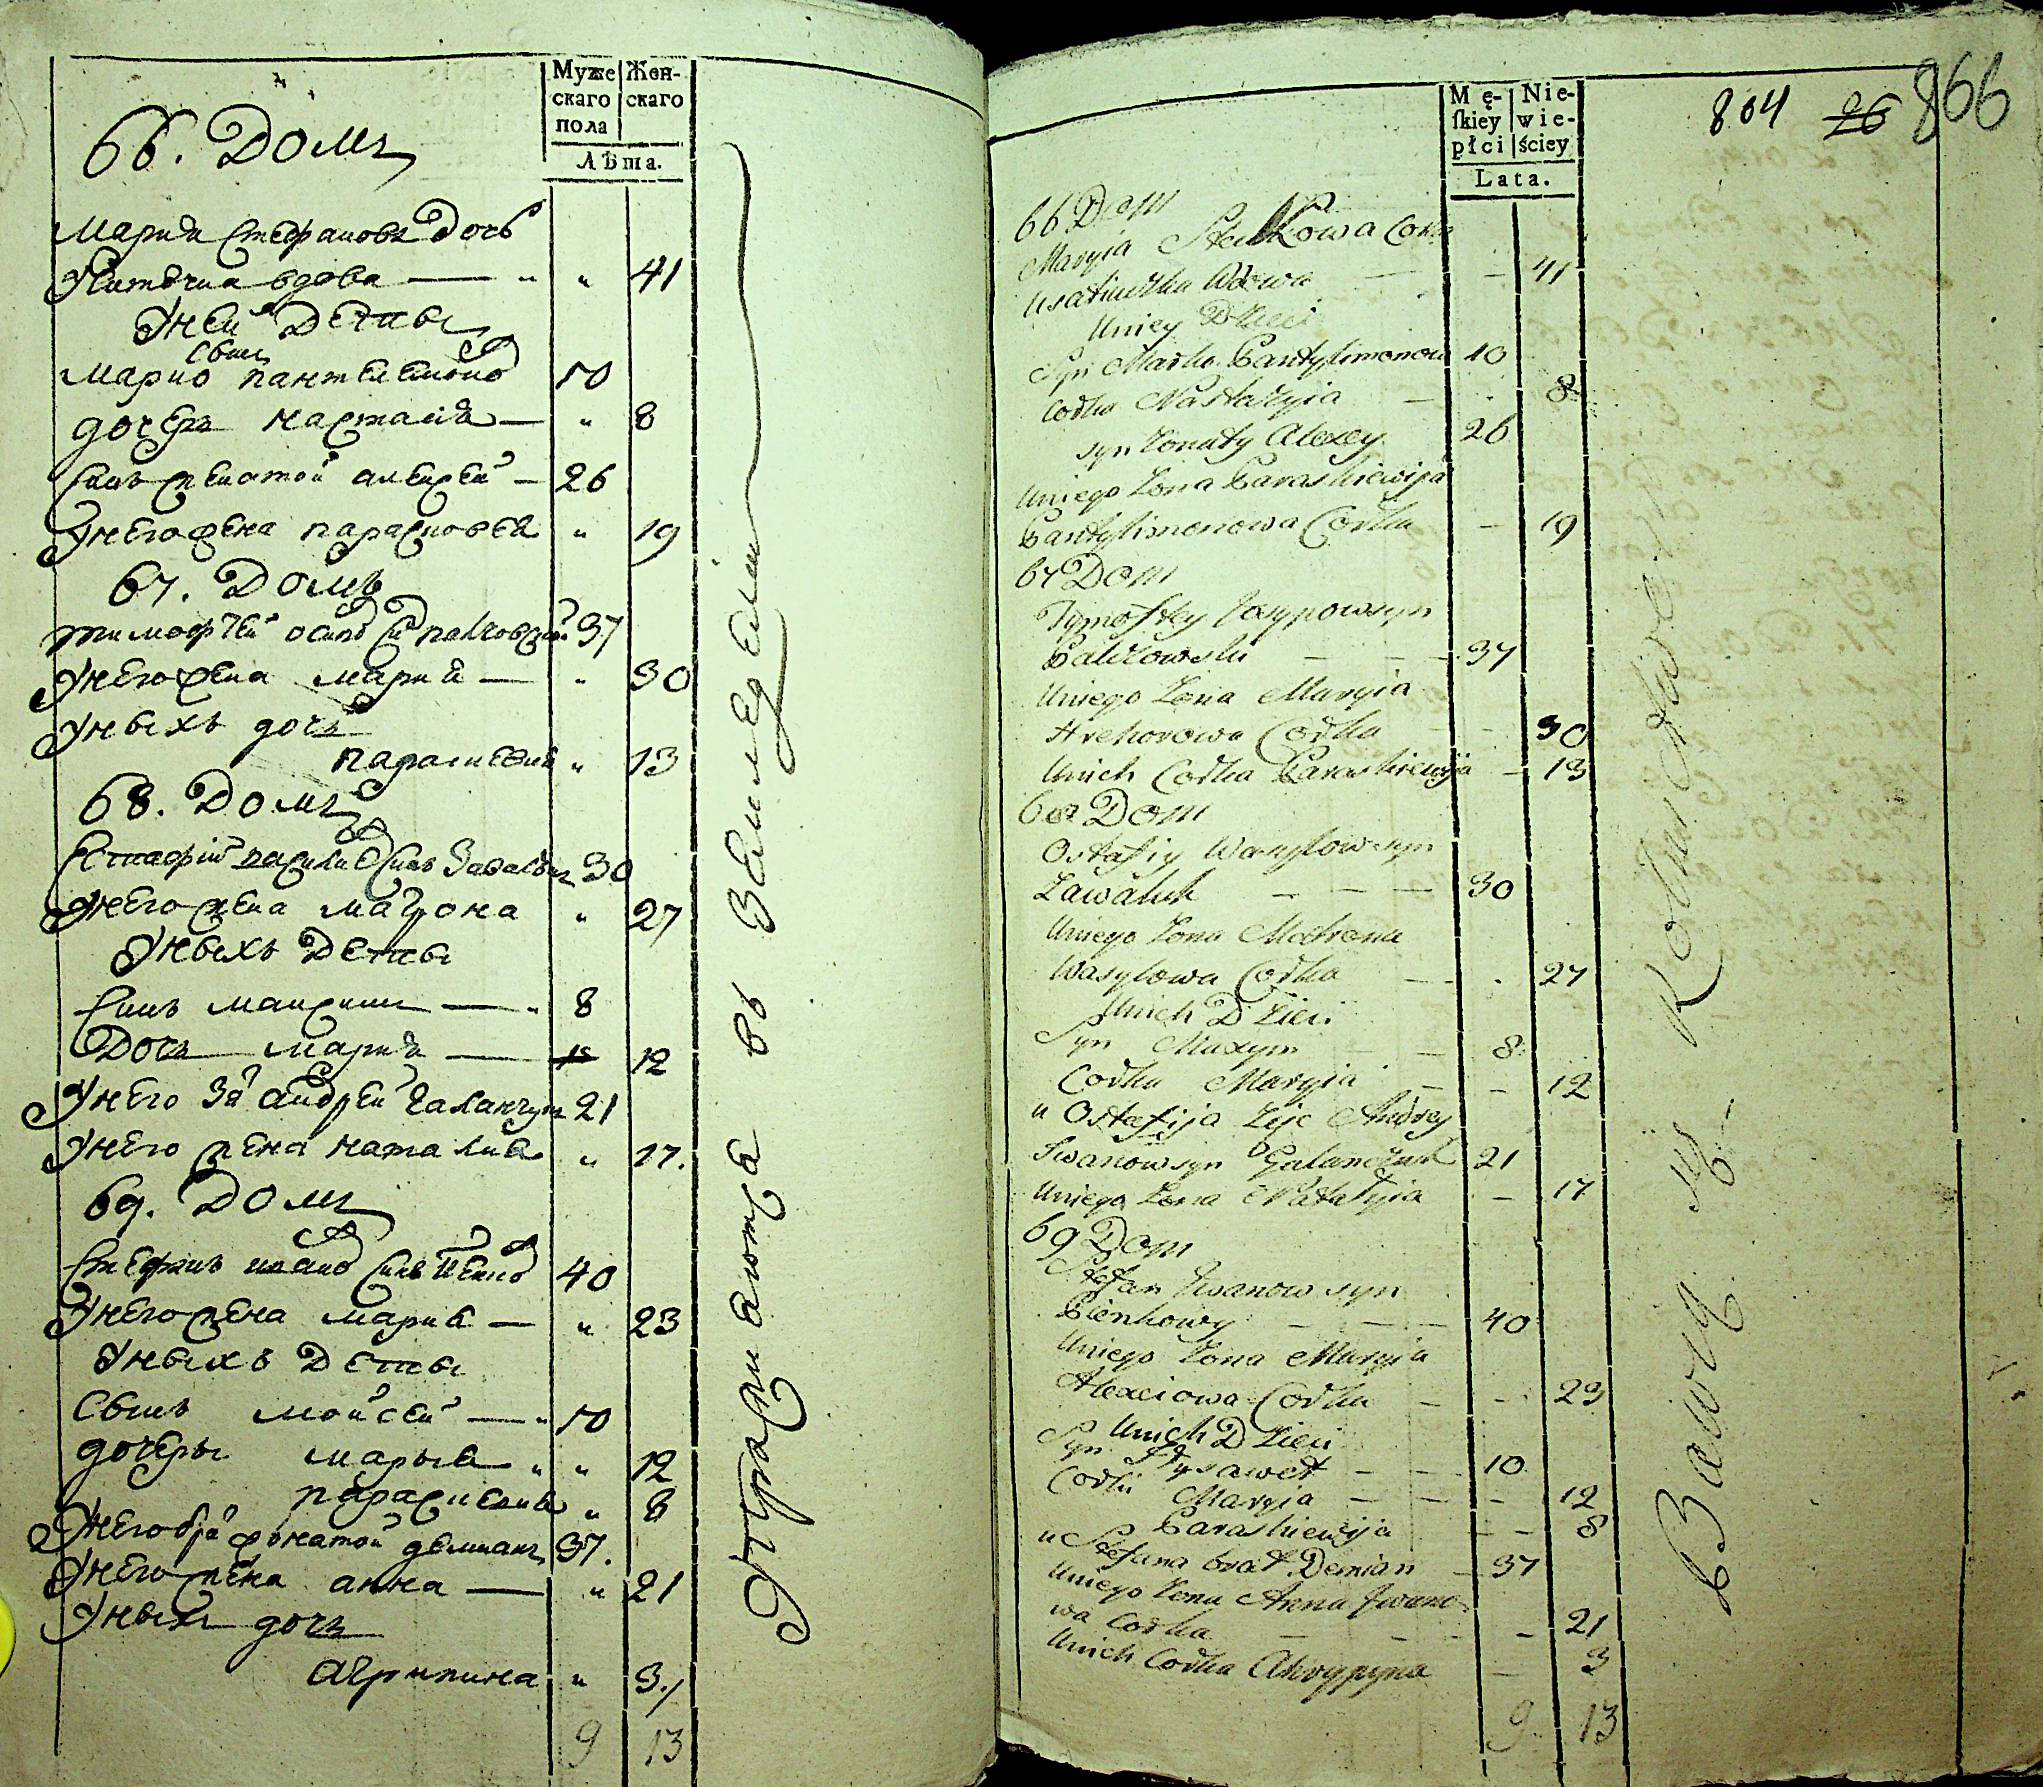 Муже
скаго
пола
Жен-
скаго
Лѣта.
66. Домъ
Мария Стефанова Дочь
вдова — " " 41
У неи Дети
сынъ
Марко Пантелемоно 10
дочеръ Настасия — " 8
Синъ женатой Алексей — 26
У него жена Парасковея " 19
67. Домъ
Тимофей Осипо Си Палховский 37
У него жена Мария — " 30
У ныхъ дочь
Параскевия " 13
68. Домъ
Естафий Васили Синъ Завалюкъ 30
У него жена Матрона " 27
У ныхъ Дети
Синъ Максимъ — " 8
Дочь Мария — 12
У него Зя Андрей Галанчукъ 21
У него жена Наталия " 17.
69. Домъ
Стефанъ Ивано Синъ Пенко 40
У него жена Мария — " 23
У ныхъ Дети
Сынъ Мойсей — " 10
дочеры Марыя " " 12
Параскевия " 8
У него бра женатой Демианъ 37.
У него жена Анна — " 21
У ныхъ дочь
Агрипина " 3./
9 13
Упражняются въ Земледелии
Mę-
ſkiey
płci
Nie-
wie-
ściey
Lata.
804 26 866
66 Dom
Maryia Stefkowa Corka
Wdowa — — 41
Uniey Dzieci
Syn Marko Pantylimonow 10
Corka Nastazyia — . 8
syn Zonaty Alexey 26
Uniego Zona Paraskiewija
Pantylimonowa Corka — 19
67 Dom
Tymofiey Jozypow syn
Palkowski — — — 37
Uniego Zona Maryia
Hrehorowa Corka — — 30
Unich Corka Paraskiewija — 13
68 Dom
Ostafiy Wasylow syn
Zawaluk — — — 30
Uniego Zona Matrona
Wasylowa Corka — . 27
Unich Dzieci
Syn Maxym — 8
Corka Maryia — — 12
u Ostafija Zięc Andrey
Iwanow syn Galanczuk 21
Uniego Zona Natalyia — 17
69 Dom
Stefan Iwanow syn
Pienkowy — — — 40
Uniego Zona Maryia
Alexiowa Corka — — 23
Unich Dzieci
Syn — — 10
Corki Maryia — — — 12
Paraskiewija — — 8
u Stefana brat Demian — 37
Uniego Zona Anna Iwano-
wa Corka — — — 21
Unich Corka Ahrypyna — 3
9 13
Bawią się Rolnictwem